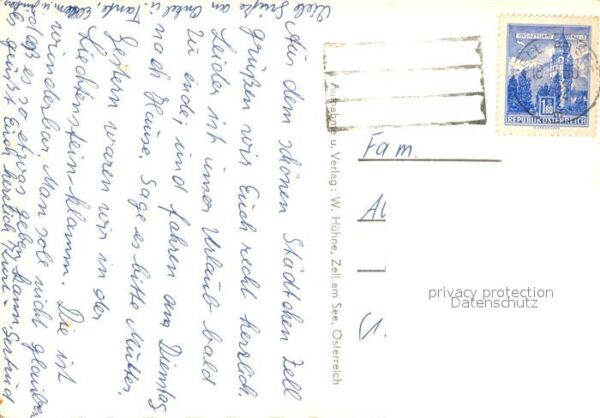 Viele Grüße an Onkel u. Tante, Eltern u.
Aus dem schönen Städtchen Zell
grüßen wir Euch recht herzlich.
Leider ist unser Urlaub bald
zu ende, und fahren am Dienstag
nach Hause. Sage es bitte Mutter.
Gestern waren wir in der
Liechtenstein-klamm. Die ist
wunderbar. Man sole nicht glauben
daß es so etwas geben kann.
Es grüßt Euch herzlich Gertrud
Aufnahme u. Verlag: W. Hühne, Zell am See, Österreich
1.80
REPUBLIK ÖSTERREICH
Fam.
privacy protection
Datenschutz